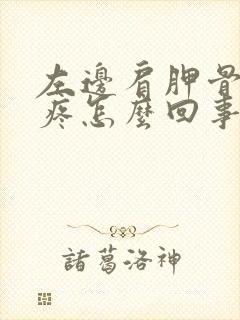 左邊肩胛骨
疼怎麼回事
諸葛洛神